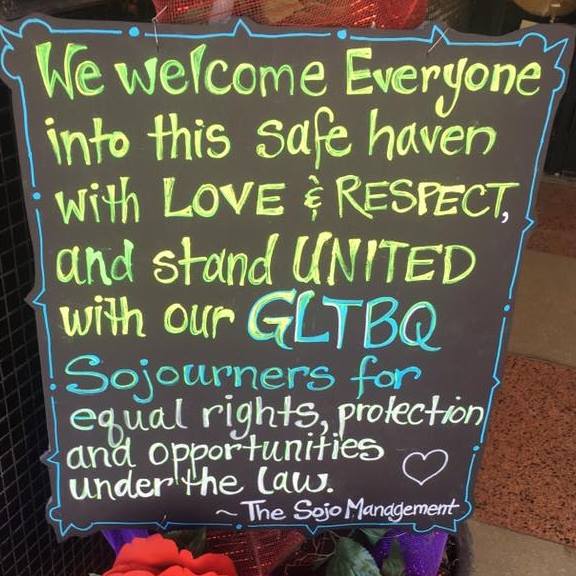 We welcome Everyone
into this safe haven
with LOVE & RESPECT,
and stand UNITED
with our GLTBQ
Sojourners for
equal rights, protection
and opportunities
under the law.
~ The Sojo Management